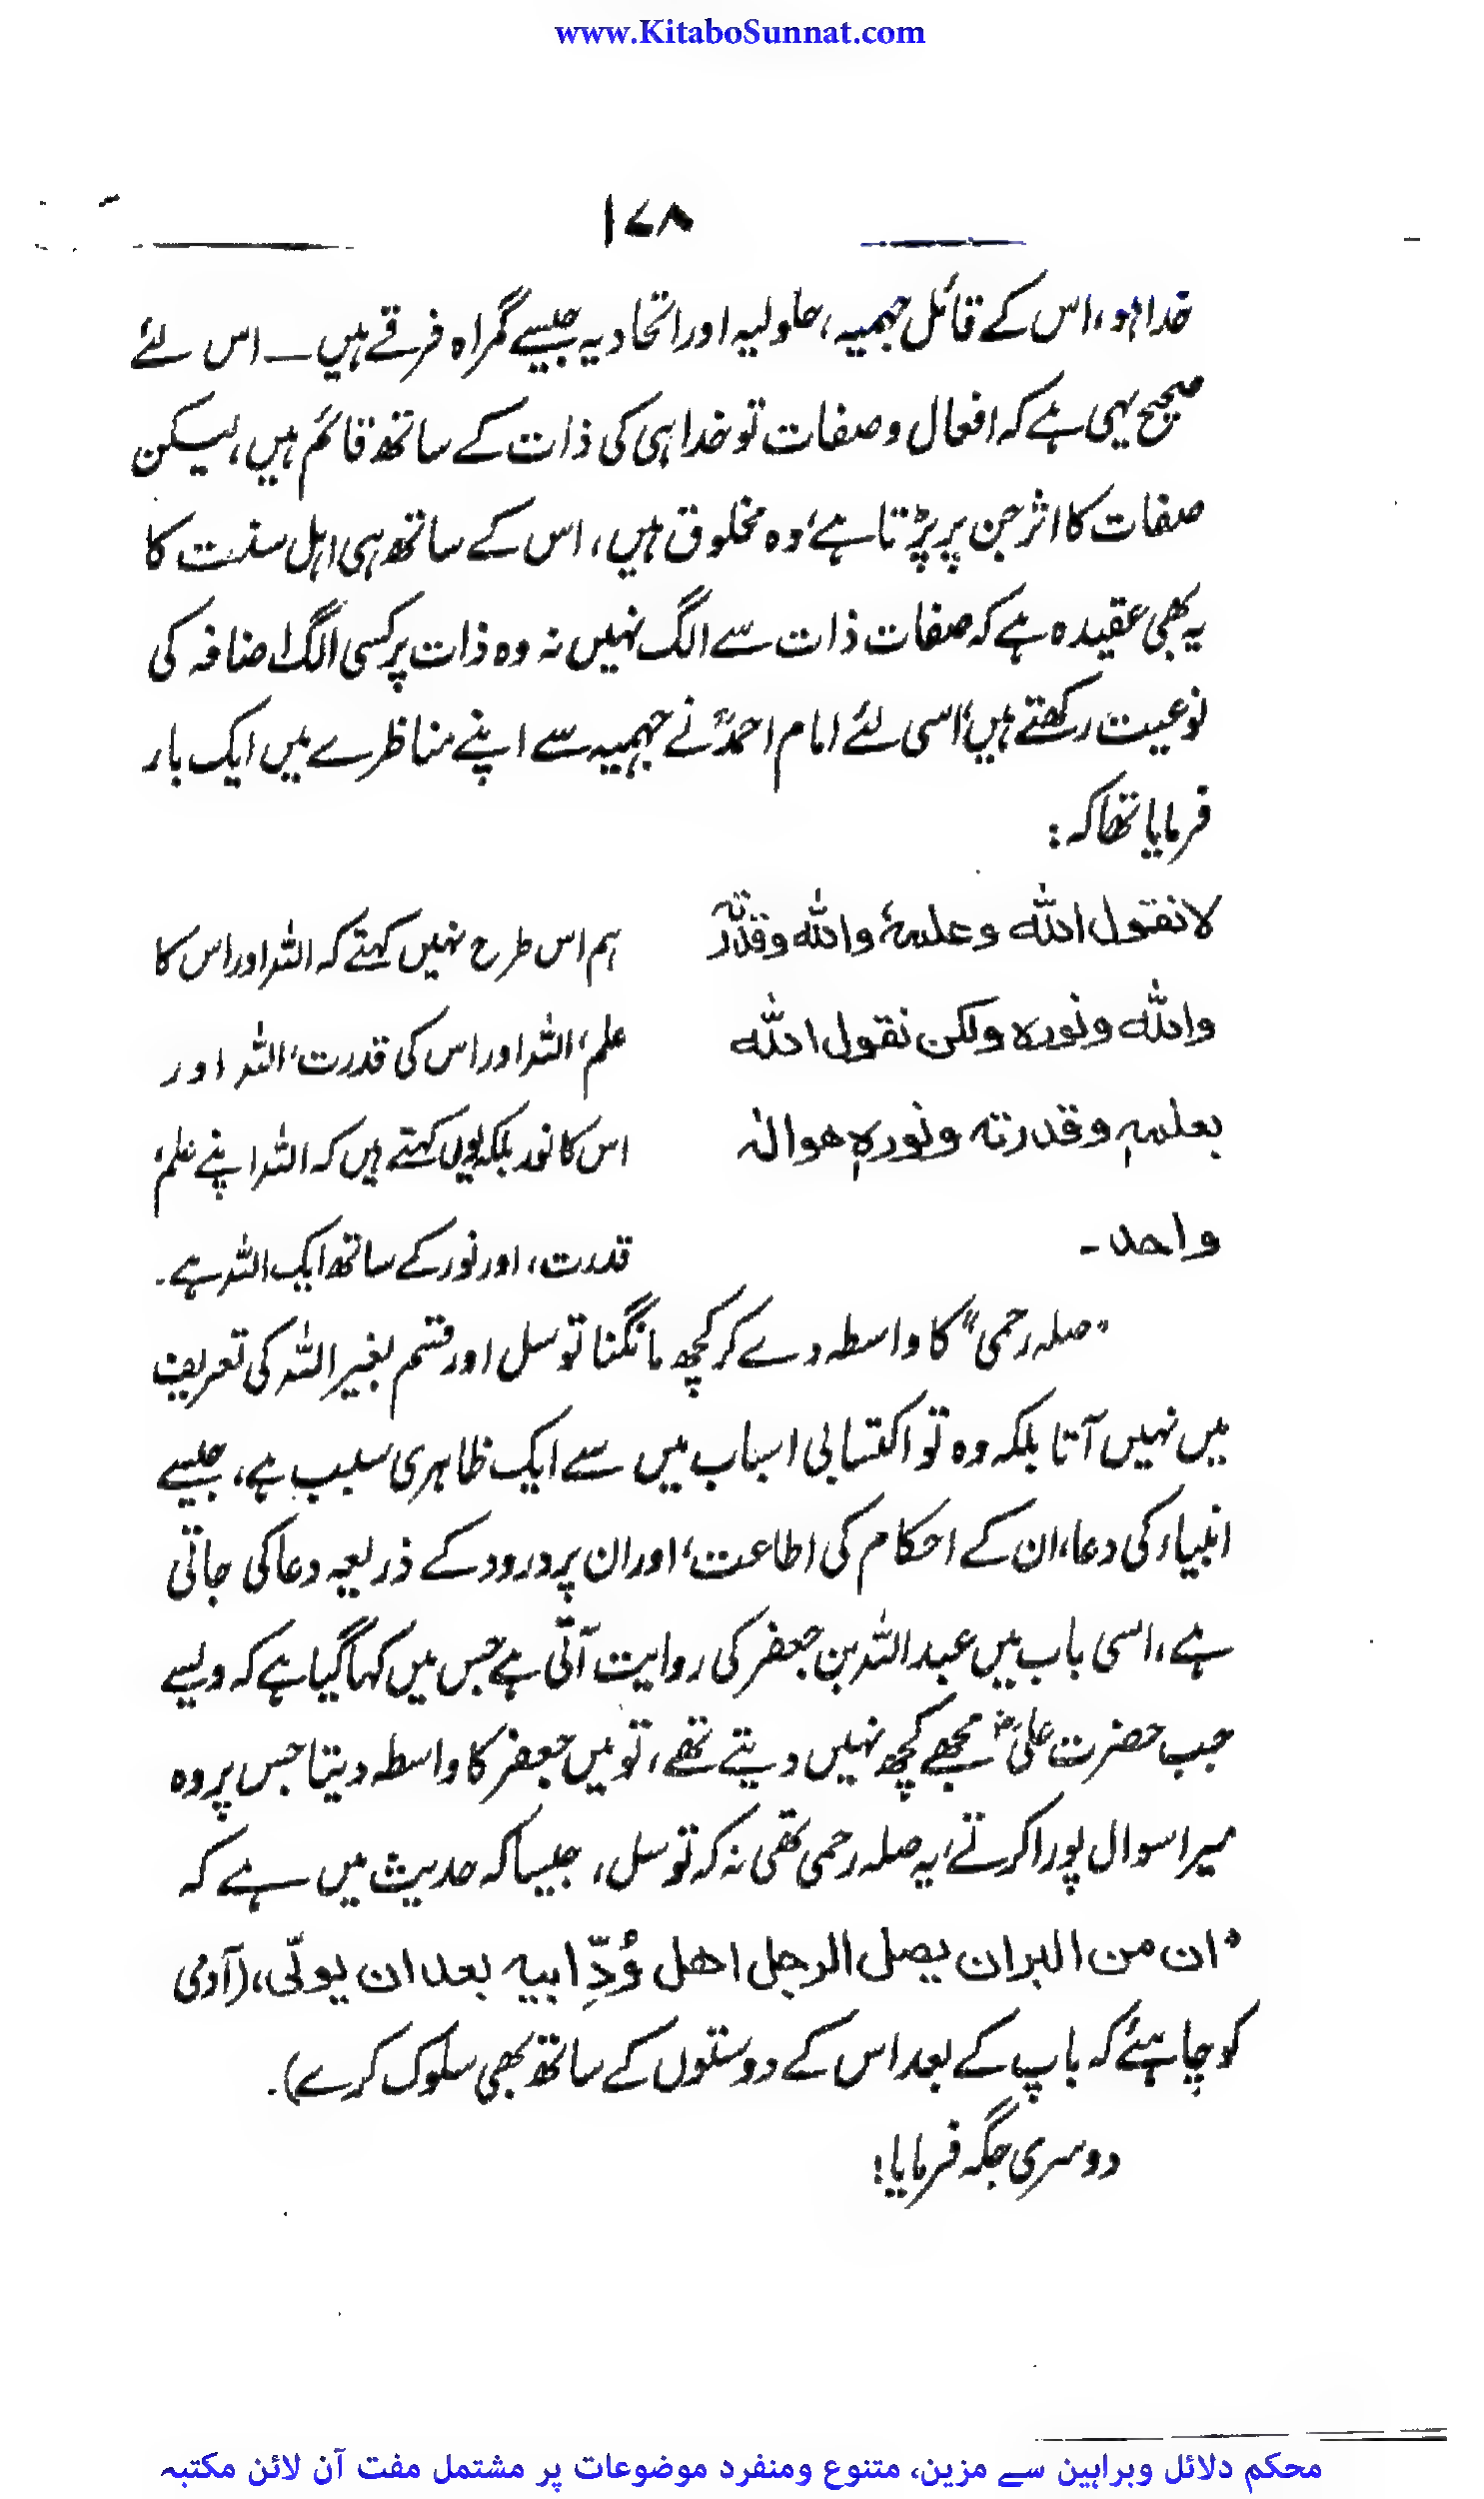 www.KitaboSunnat.com
۱۷۸
خدا ہو، اس کے قائل جہمیہ، حلولیہ اور اتحادیہ جیسے گمراہ فرقے ہیں ـ اس لئے
صحیح یہی ہے کہ افعال و صفات تو خدا ہی کی ذات کے ساتھ قائم ہیں، لیکن
صفات کا اثر جن پر پڑتا ہے، وہ مخلوق ہیں، اس کے ساتھ ہی اہل سنت کا
یہ بھی عقیدہ ہے کہ صفات ذات سے الگ نہیں نہ وہ ذات پر کسی الگ اضافہ کی
نوعیت رکھتے ہیں، اسی لئے امام احمدؒ نے جہمیہ سے اپنے مناظرے میں ایک بار
فرمایا تھا کہ:
لا نقول الله وعلمهٗ والله وقدرته
والله ونوره ولكن نقول الله
بعلمہٖ وقدرته ونورہٖ هو اله
واحد ـ
ہم اس طرح نہیں کہتے کہ اللہ اور اس کا
علم، اللہ اور اس کی قدرت، اللہ اور
اس کا نور بلکہ یوں کہتے ہیں کہ اللہ اپنے علم،
قدرت، اور نور کے ساتھ ایک اللہ ہے۔
"صلہ رحمی" کا واسطہ دے کر کچھ مانگنا توسل اور قسم بغیر اللہ کی تعریف
میں نہیں آتا بلکہ وہ تو اکتسابی اسباب میں سے ایک ظاہری سبب ہے، جیسے
انبیاء کی دعا، ان کے احکام کی اطاعت، اور ان پر درود کے ذریعہ دعا کی جاتی
ہے، اسی باب میں عبداللہ بن جعفر کی روایت آتی ہے جس میں کہا گیا ہے کہ ویسے
جب حضرت علیؓ مجھے کچھ نہیں دیتے تھے، تو میں جعفر کا واسطہ دیتا جس پر وہ
میرا سوال پورا کرتے، یہ صلہ رحمی تھی نہ کہ توسل، جیسا کہ حدیث میں ہے کہ
"ان من البر ان يصل الرجل اهل وُدِّ ابيه بعد ان يولّى، (آدمی
کو چاہئے کہ باپ کے بعد اس کے دوستوں کے ساتھ بھی سلوک کرے)۔
دوسری جگہ فرمایا:
محکم دلائل وبراہین سے مزین، متنوع ومنفرد موضوعات پر مشتمل مفت آن لائن مکتبہ